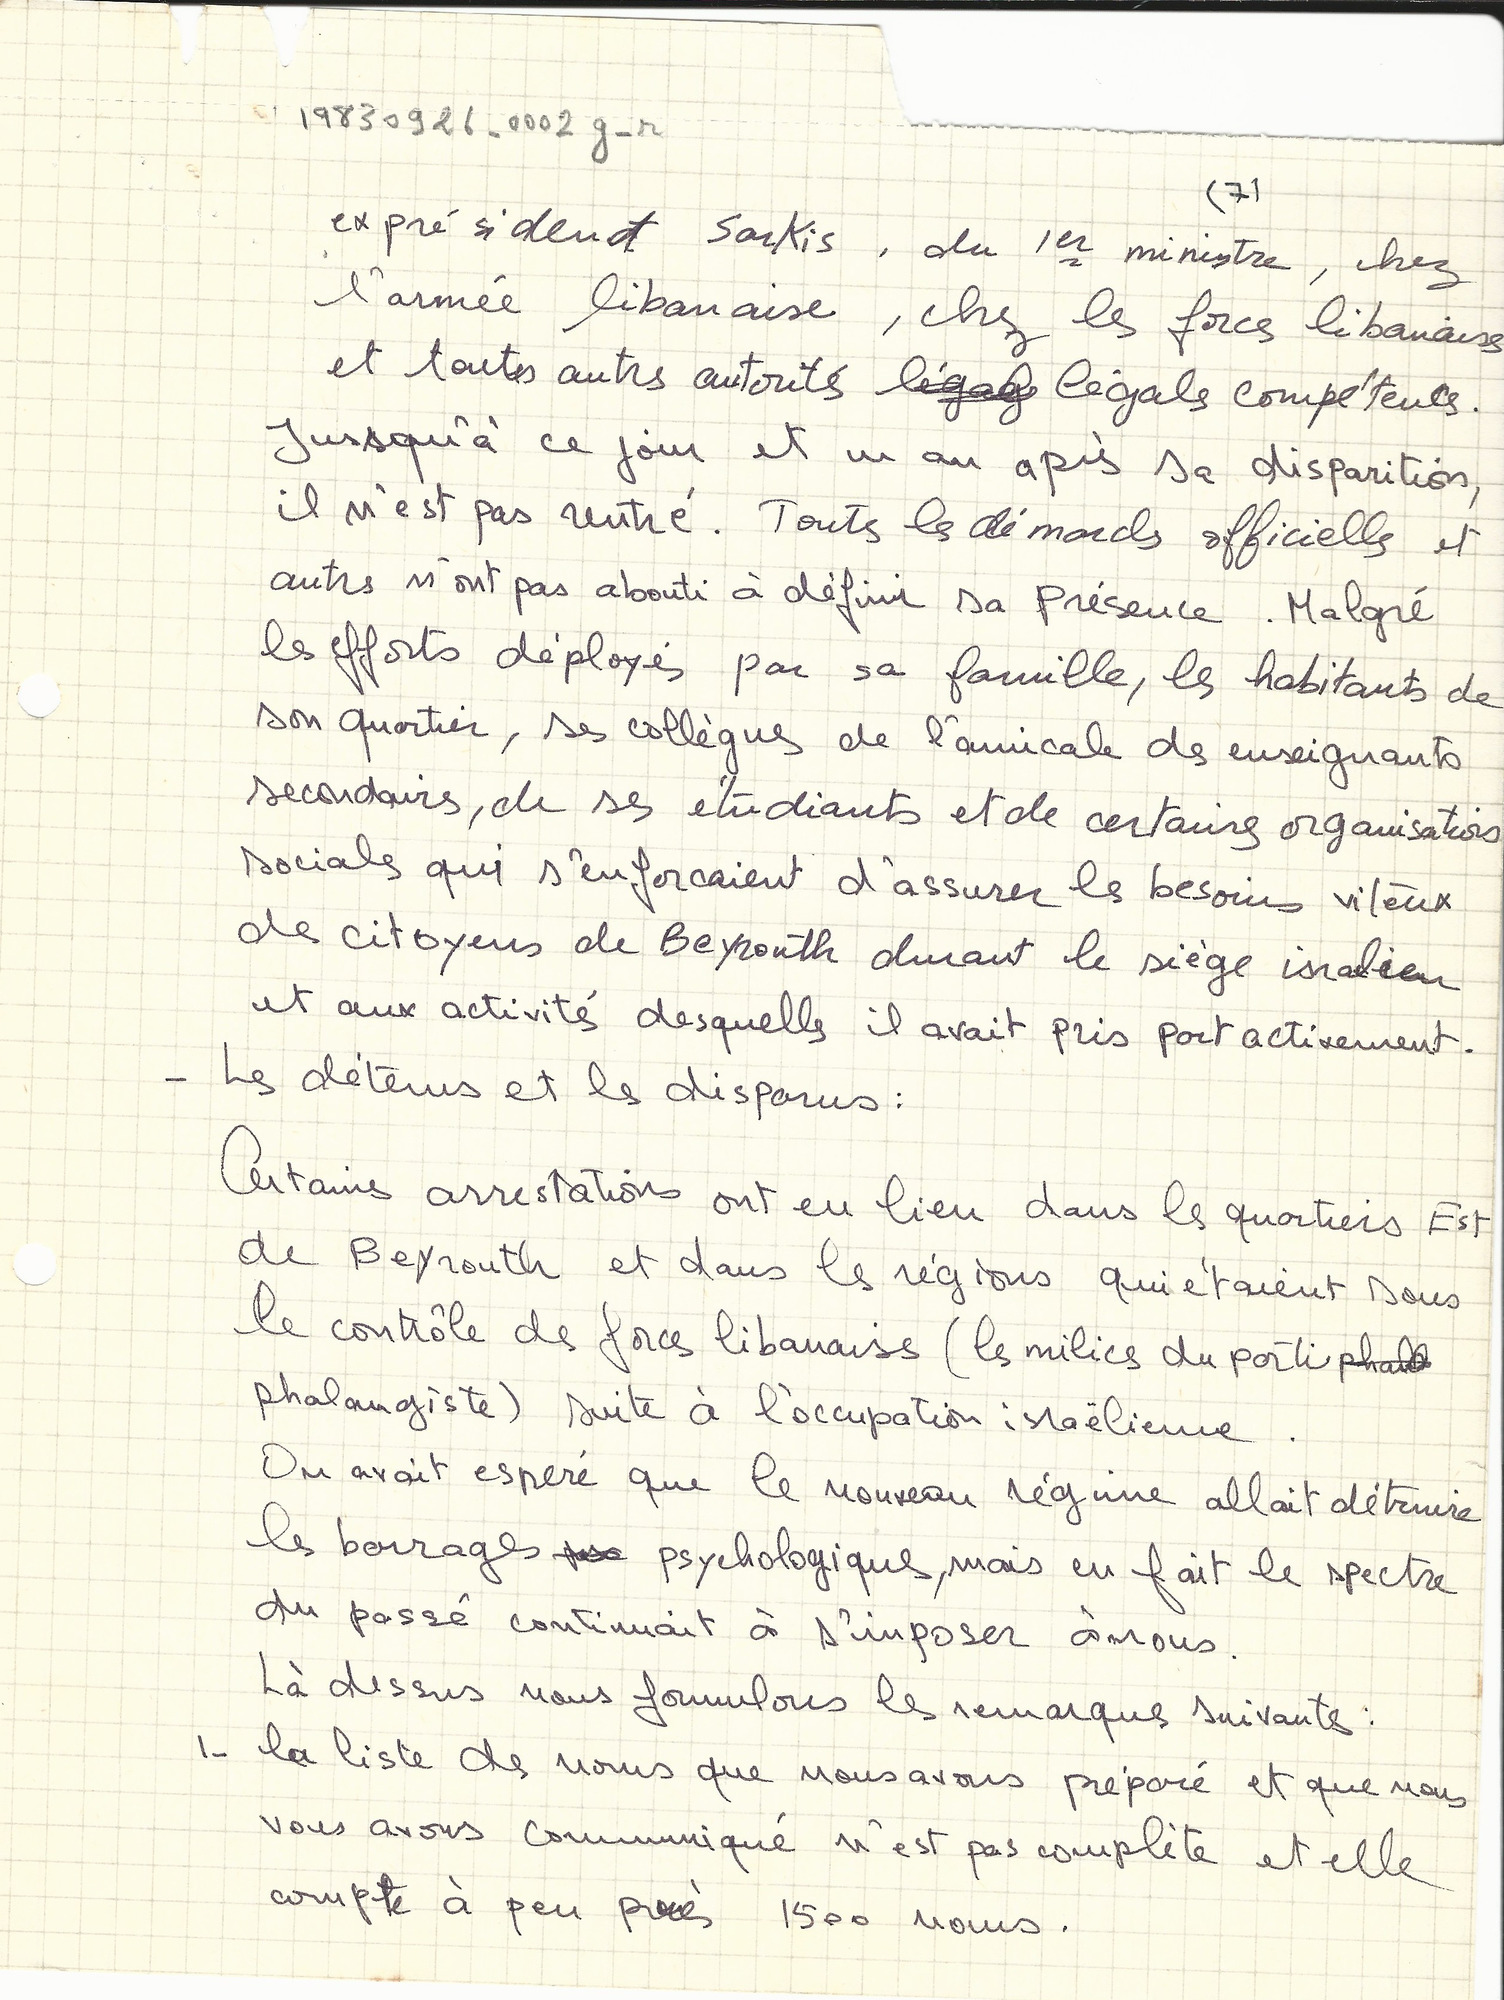 19830926_0002 g_r
(7)
ex président Sarkis, du 1er ministre, chez
l'armée libanaise, chez les forces libanaises
et toutes autres autorités légales légales compétentes.
Jussqu'à ce jour et un an après sa disparition,
il n'est pas rentré. Toutes les démards officielles et
autres n'ont pas abouti à définir sa présence. Malgré
les efforts déployés par sa famille, les habitants de
son quartier, ses collègues de l'amicale des enseignants
secondaires, de ses étudiants et de certaines organisations
sociales qui s'enforcaient d'assurer les besoins viteux
des citoyens de Beyrouth durant le siège isralien
et aux activités desquelles il avait pris part activement.
- Les détenus et les disparus:
Certaines arrestations ont eu lieu dans les quartiers Est
de Beyrouth et dans les régions qui étaient sous
le contrôle des forces libanaises (les milices du parti phala
phalangiste) suite à l'occupation israëlienne.
On avait esperé que le nouveau régime allait détruire
les barrages psychologiques, mais en fait le spectre
du passé continuait à s'imposer à nous.
Là dessus nous formulons les remarques suivantes:
1- la liste des noms que nous avons préparé et que nous
vous avons communiqué n'est pas complète et elle
compte à peu près 1500 noms.